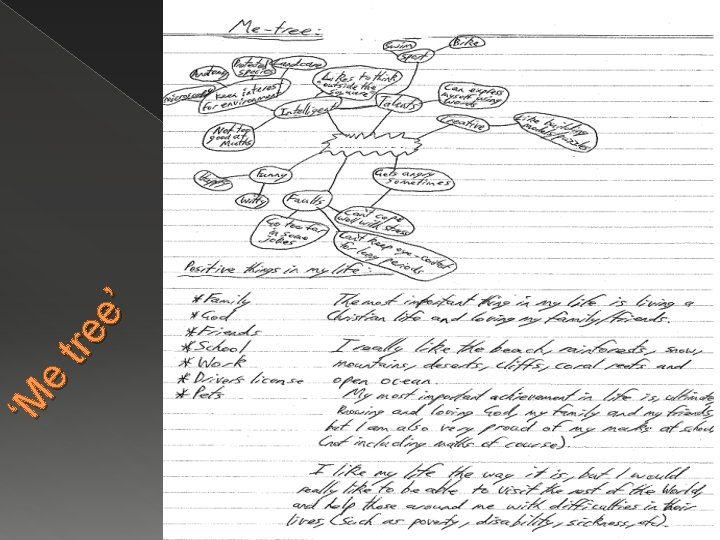 'Me tree'
Me-tree:
Swim
Sport
Bike
Protected species
Landcare
keen interest for environment
Likes to think outside the square
Intelligent
Talents
Can express myself using words
Creative
Like building models/puzzles
Not too good at Maths
Funny
Happy
Witty
Faults
Gets angry sometimes
Can't cope well with stress
Go too far in some jokes
Can't keep eye-contact for long periods
Positive things in my life:
* Family
* God
* Friends
* School
* Work
* Drivers license
* Pets
The most important thing in my life is living a
Christian life and loving my family/friends.
I really like the beach, rainforests, snow,
mountains, deserts, cliffs, coral reefs and
open ocean.
My most important achievement in life is, ultimate
knowing and loving God, my family and my friends
but I am also very proud of my marks at school
(not including maths of course).
I like my life the way it is, but I would
really like to be able to visit the rest of the World,
and help those around me with difficulties in their
lives, (such as poverty, disability, sickness, etc).